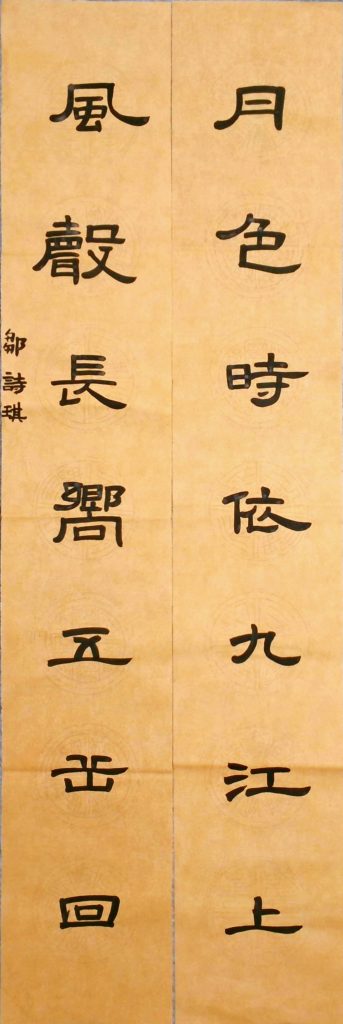 月色時依九江上
風聲長嚮五岳回
鄒詩琪